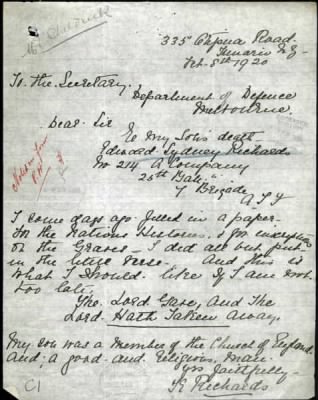 335 Ohpua Road
Timaru N.Z
Feb. 8th 1920
To. the. Secretary.
Department of Defence
Melbourne.
Dear Sir
Re My Sons death
Edward Sydney Richards
No 214 A Company
25th Batt.
7 Brigade
A I F
I some days ago filled in a paper
for the Nations Histories, & for inscription
on the Graves — I did all but put
in the little verse. And this is
what I should like if I am not
too late.
The Lord Gave, And The
Lord Hath Taken Away.
My son was a member of the Church of England
And a good and religious man.
Yrs faithfully
Richards
C1